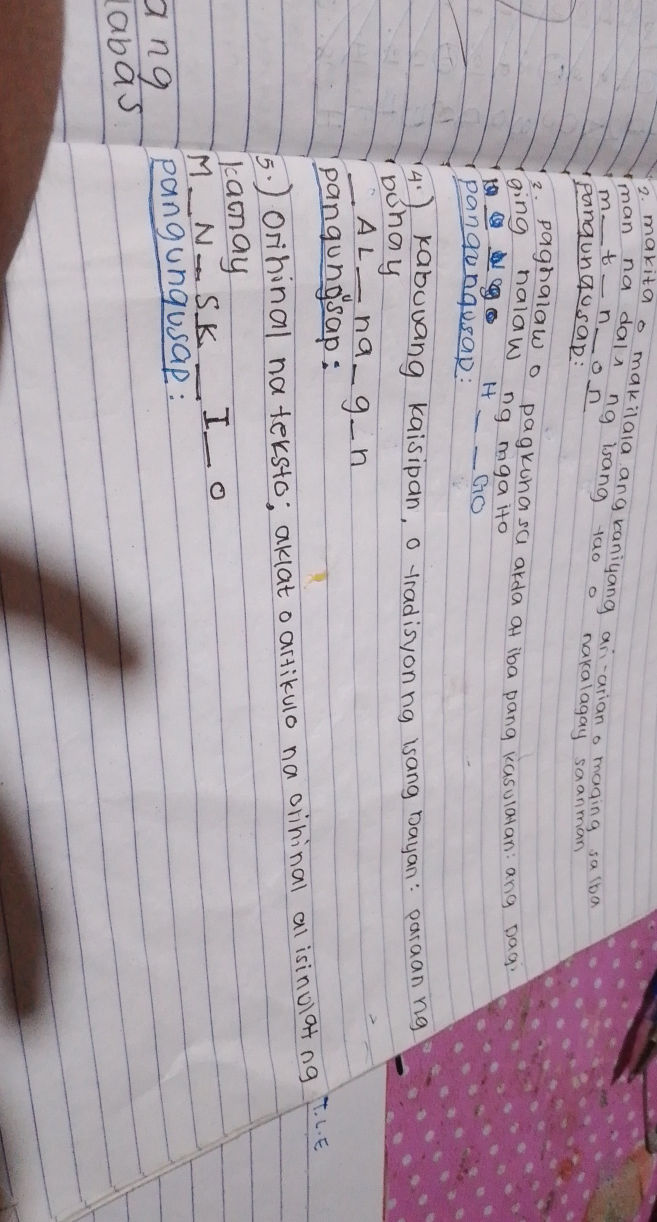 2. makita o makilala ang kaniyang ari-arian o maging sa iba
man na dala ng isang tao o nakalagay saanman
m_t_n_on
pangungusap:
3. paghalaw o pagkuha sa akda at iba pang kasulatan: ang pagi
ging halaw ng mga ito
H__GO
pangungusap:
4.) kabuuang kaisipan, o tradisyon ng isang bayan: paraan ng
buhay
_AL_na_g_n
pangungusap:
5.) orihinal na teksto; aklat o artikulo na orihinal at isinulat ng
kamay
M_N_SK_I_o
pangungusap:
ang
labas
T.L.E